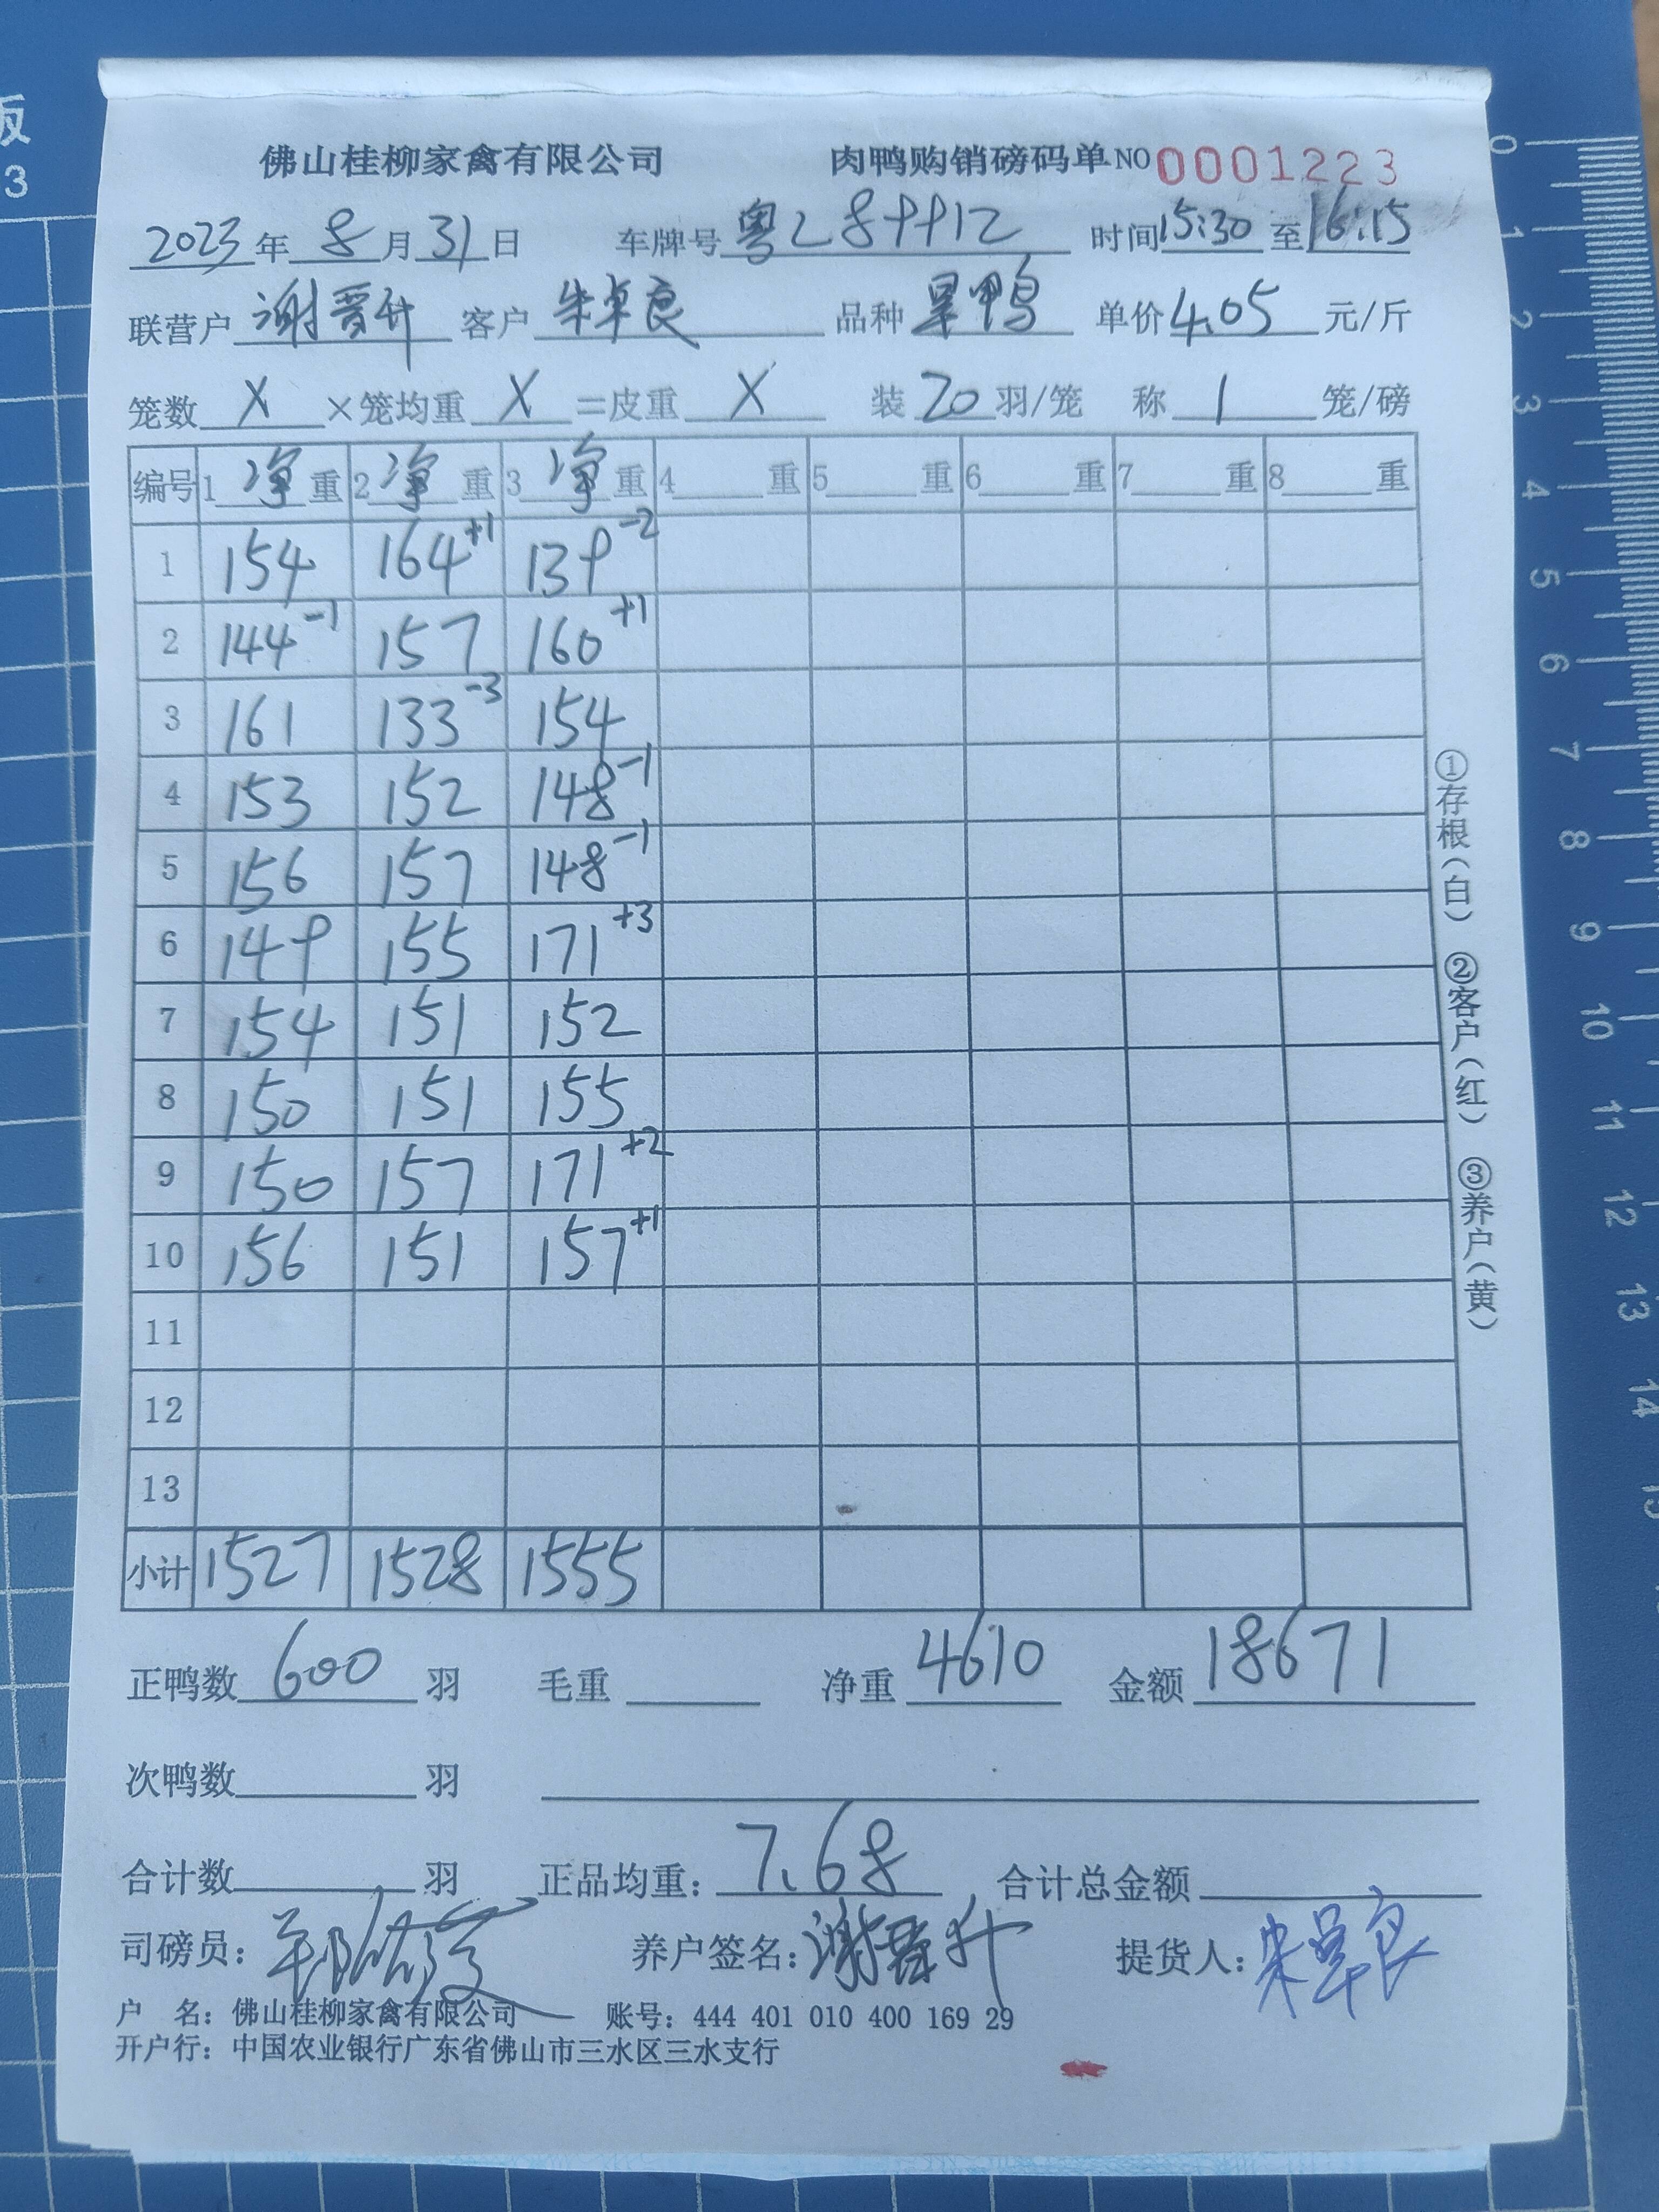 佛山桂柳家禽有限公司 肉鸭购销磅码单 NO 0001223
2023年8月31日 车牌号 粤Z89912 时间15:30至16:15
联营户 谢晋升 客户 朱卓良 品种 旱鸭 单价4.05元/斤
笼数 X ×笼均重 X =皮重 X 装 20 羽/笼 称 1 笼/磅
编号 1 净 重 2 净 重 3 净 重 4 重 5 重 6 重 7 重 8 重
1 154 164+1 139-2
2 144-1 157 160+1
3 161 133-3 154
4 153 152 148-1
5 156 157 148-1
6 149 155 171+3
7 154 151 152
8 150 151 155
9 150 157 171+2
10 156 151 157+1
11
12
13
小计 1527 1528 1555
正鸭数 600 羽 毛重 净重 4610 金额 18671
次鸭数 羽
合计数 羽 正品均重: 7.68 合计总金额
司磅员: 养户签名: 谢晋升 提货人: 朱卓良
户 名: 佛山桂柳家禽有限公司 账号: 444 401 010 400 169 29
开户行: 中国农业银行广东省佛山市三水区三水支行
①存根(白) ②客户(红) ③养户(黄)
板
3
0
1
2
3
4
5
6
7
8
9
10
11
12
13
14